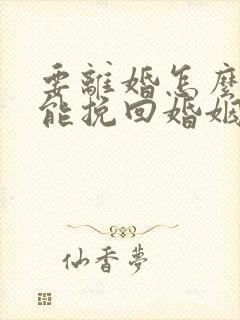 要離婚怎麼
能挽回婚姻
仙香夢